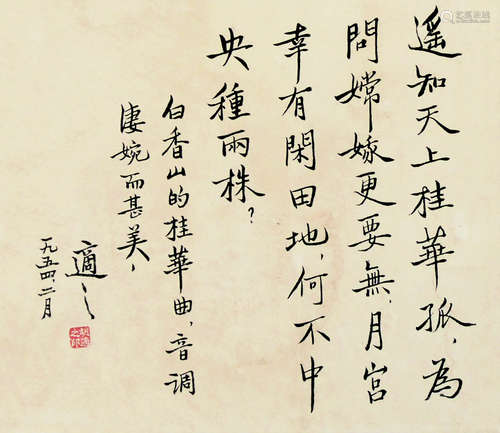 遥知天上桂華孤，為
問嫦娥更要無，月宮
幸有閑田地，何不中
央種兩株？
白香山的桂華曲，音調
淒婉而甚美，
適之
一九五四，二月